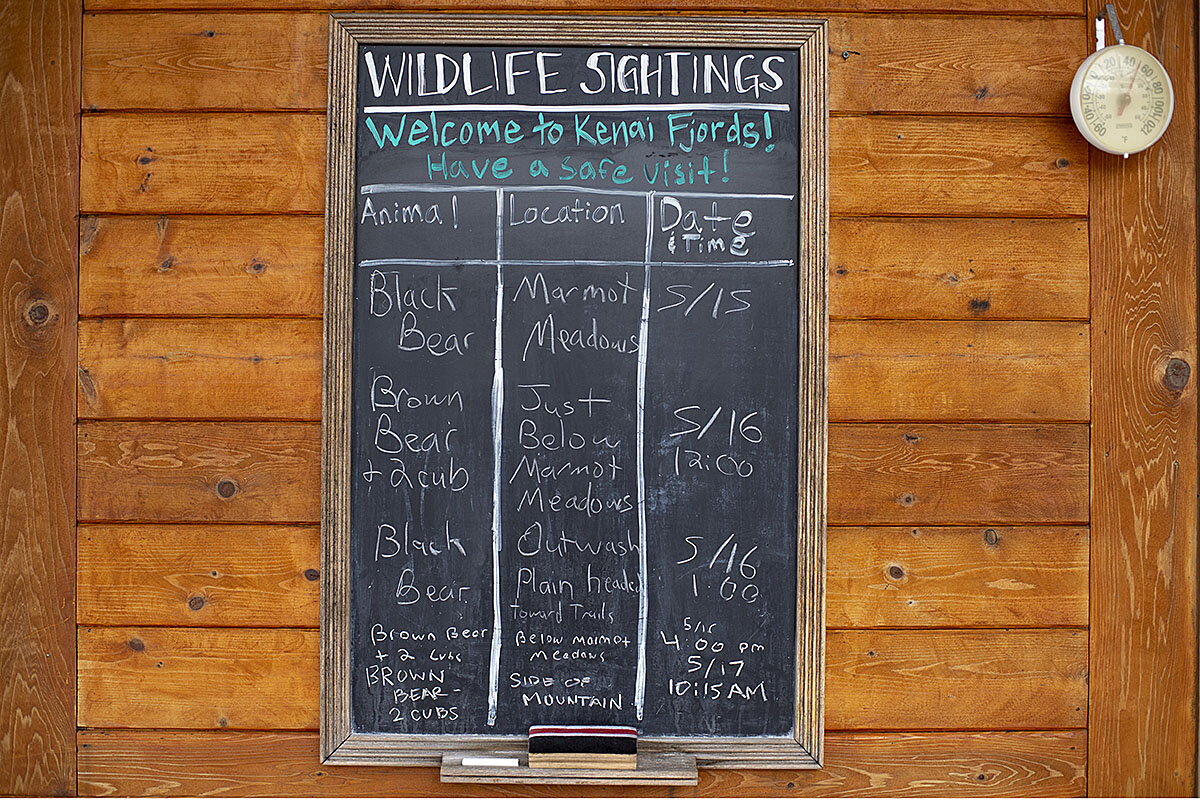 WILDLIFE SIGHTINGS
Welcome to Kenai Fjords!
Have a safe visit!
Animal Location Date
& Time
Black Marmot 5/15
Bear Meadows
Brown Just
Bear Below 5/16
+ 2 cub Marmot 12:00
Meadows
Black Outwash 5/16
Bear Plain headed 1:00
toward Trails
Brown Bear Below marmot
+ 2 cubs Meadows 4:00 pm
BROWN SIDE OF 5/17
BEAR - MOUNTAIN 10:15 AM
2 CUBS
20 40 60
80
100
120
40
60
°F